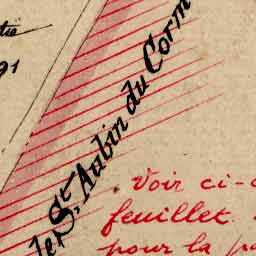 91
de St Aubin du Corm
Voir ci-
feuillet
pour la